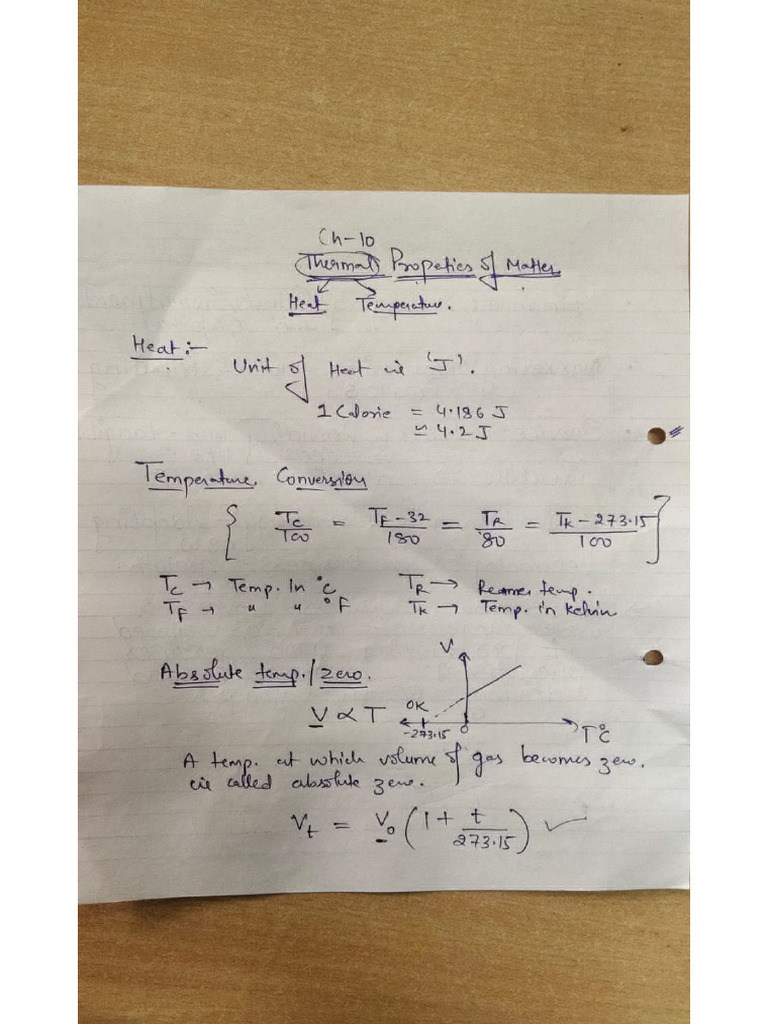 Ch-10
Thermal Propeties of Matter
Heat Temperature.
Heat:-
Unit of Heat is 'J'.
1 Calorie = 4.186 J
≃ 4.2 J
Temperature Conversion
{ T_C/100 = T_F-32/180 = T_R/80 = T_K-273.15/100 }
T_C → Temp. in °C T_R → Reamer temp.
T_F → " " °F T_K → Temp. in kelvin
V
Absolute temp./zero.
V ∝ T
OK
-273.15 0 T°C
A temp. at which volume of gas becomes zero.
is called absolute zero.
V_t = V_0 (1 + t/273.15) ✓